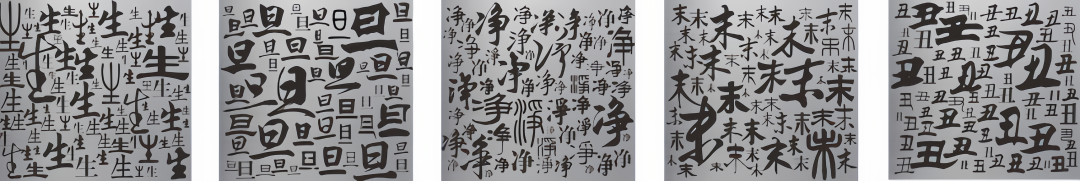 生 旦 净 末 丑